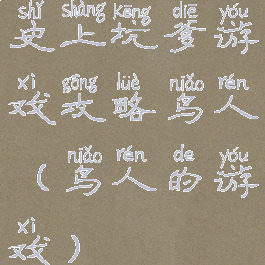 shǐ shàng kēng diē yóu
史上坑爹游
xì gōng lüè niǎo rén
戏攻略鸟人
niǎo rén de yóu
（鸟人的游
xì
戏）